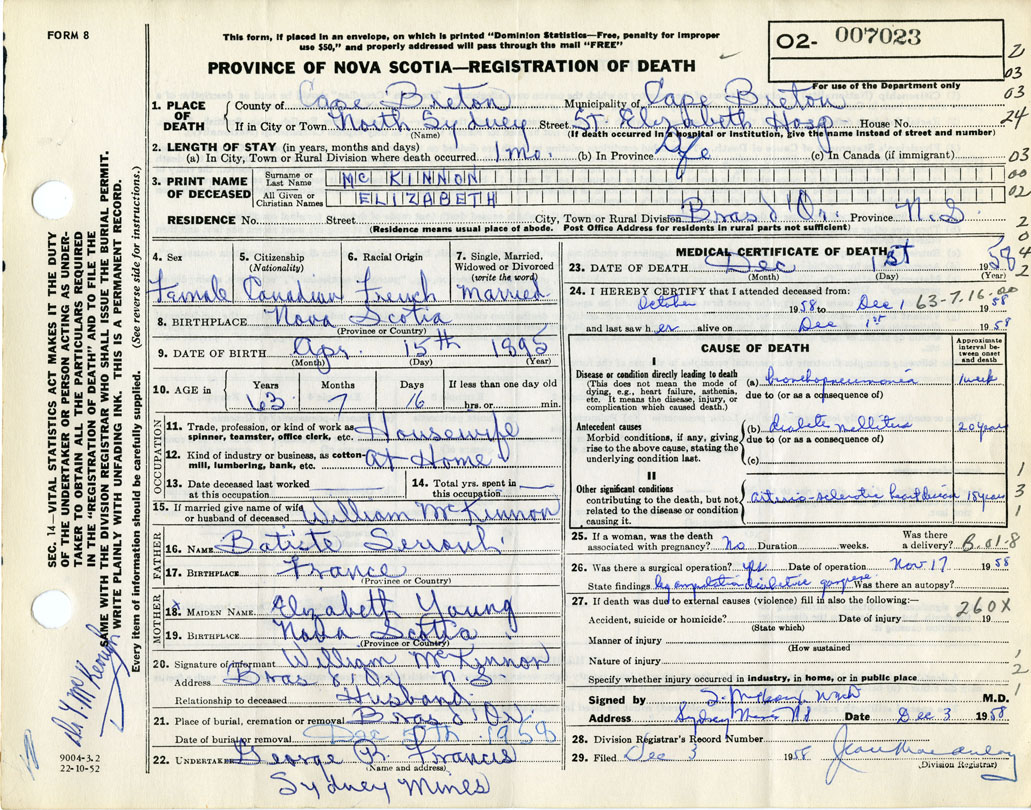 FORM 8
This form, if placed in an envelope, on which is printed "Dominion Statistics—Free, penalty for improper
use $50," and properly addressed will pass through the mail "FREE"
O2- 007023
PROVINCE OF NOVA SCOTIA—REGISTRATION OF DEATH
For use of the Department only
2
03
03
24
03
00
02
2
0
4
2
1. PLACE OF DEATH County of Cape Breton Municipality of Cape Breton
If in City or Town North Sydney Street St. Elizabeth Hosp House No.
(Name) (If death occurred in hospital or institution, give the name instead of street and number)
2. LENGTH OF STAY (in years, months and days)
(a) In City, Town or Rural Division where death occurred 1 mo. (b) In Province Life (c) In Canada (if immigrant)
3. PRINT NAME OF DECEASED Surname or Last Name MC KINNON
All Given or Christian Names ELIZABETH
RESIDENCE No. Street City, Town or Rural Division Bras d'Or. Province N.S.
(Residence means usual place of abode. Post Office Address for residents in rural parts not sufficient)
4. Sex Female
5. Citizenship (Nationality) Canadian
6. Racial Origin French
7. Single, Married, Widowed or Divorced (write the word) Married
8. BIRTHPLACE Nova Scotia
(Province or Country)
9. DATE OF BIRTH Apr. 15th 1895
(Month) (Day) (Year)
10. AGE in Years 63 Months 7 Days 16 If less than one day old hrs. or min.
OCCUPATION
11. Trade, profession, or kind of work as spinner, teamster, office clerk, etc. Housewife
12. Kind of industry or business, as cotton-mill, lumbering, bank, etc. At Home
13. Date deceased last worked at this occupation
14. Total yrs. spent in this occupation
15. If married give name of wife or husband of deceased William McKinnon
FATHER
16. NAME Batiste
17. BIRTHPLACE France
(Province or Country)
MOTHER
18. MAIDEN NAME Elizabeth Young
19. BIRTHPLACE Nova Scotia
(Province or Country)
20. Signature of informant William McKinnon
Address Bras d'Or N.S.
Relationship to deceased Husband
21. Place of burial, cremation or removal Bras d'Or.
Date of burial or removal Dec 1958
22. UNDERTAKER George R. Francis
(Name and address)
Sydney Mines
MEDICAL CERTIFICATE OF DEATH
23. DATE OF DEATH Dec 1st 1958
(Month) (Day) (Year)
24. I HEREBY CERTIFY that I attended deceased from:
October 1958 to Dec 1 1958
63-7-16-00
and last saw her alive on Dec 1st 1958
CAUSE OF DEATH
Approximate interval between onset and death
I
Disease or condition directly leading to death
(This does not mean the mode of dying, e.g., heart failure, asthenia, etc. It means the disease, injury, or complication which caused death.)
(a) bronchopneumonia 1 week
due to (or as a consequence of)
Antecedent causes
Morbid conditions, if any, giving rise to the above cause, stating the underlying condition last.
(b) diabetes mellitus 20 years
due to (or as a consequence of)
(c)
II
Other significant conditions
contributing to the death, but not related to the disease or condition causing it.
arterio-sclerotic heart disease 15 years
1
3
1
25. If a woman, was the death associated with pregnancy? No Duration weeks. Was there a delivery?
B.01-8
26. Was there a surgical operation? yes Date of operation Nov 17 1958
State findings leg amputation diabetic gangrene Was there an autopsy?
27. If death was due to external causes (violence) fill in also the following:—
260X
Accident, suicide or homicide? Date of injury 19
(State which)
Manner of injury
(How sustained
Nature of injury
Specify whether injury occurred in industry, in home, or in public place
1
2
1
Signed by M.D.
Address Sydney Mines NS Date Dec 3 1958
28. Division Registrar's Record Number
29. Filed Dec 3 1958
(Division Registrar)
SEC. 14—VITAL STATISTICS ACT MAKES IT THE DUTY
OF THE UNDERTAKER OR PERSON ACTING AS UNDER-
TAKER TO OBTAIN ALL THE PARTICULARS REQUIRED
IN THE "REGISTRATION OF DEATH" AND TO FILE THE
SAME WITH THE DIVISION REGISTRAR WHO SHALL ISSUE THE BURIAL PERMIT.
WRITE PLAINLY WITH UNFADING INK. THIS IS A PERMANENT RECORD.
Every item of information should be carefully supplied. (See reverse side for instructions.)
9004-3.2
22-10-52